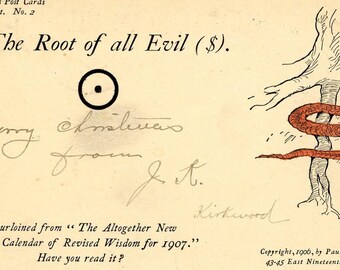 Post Cards
t. No. 2
The Root of all Evil ($).
erry Christmas
from
J. K.
Kirkwood
urloined from " The Altogether New
Calendar of Revised Wisdom for 1907."
Have you read it?
Copyright, 1906, by Pau
43-45 East Nineteen